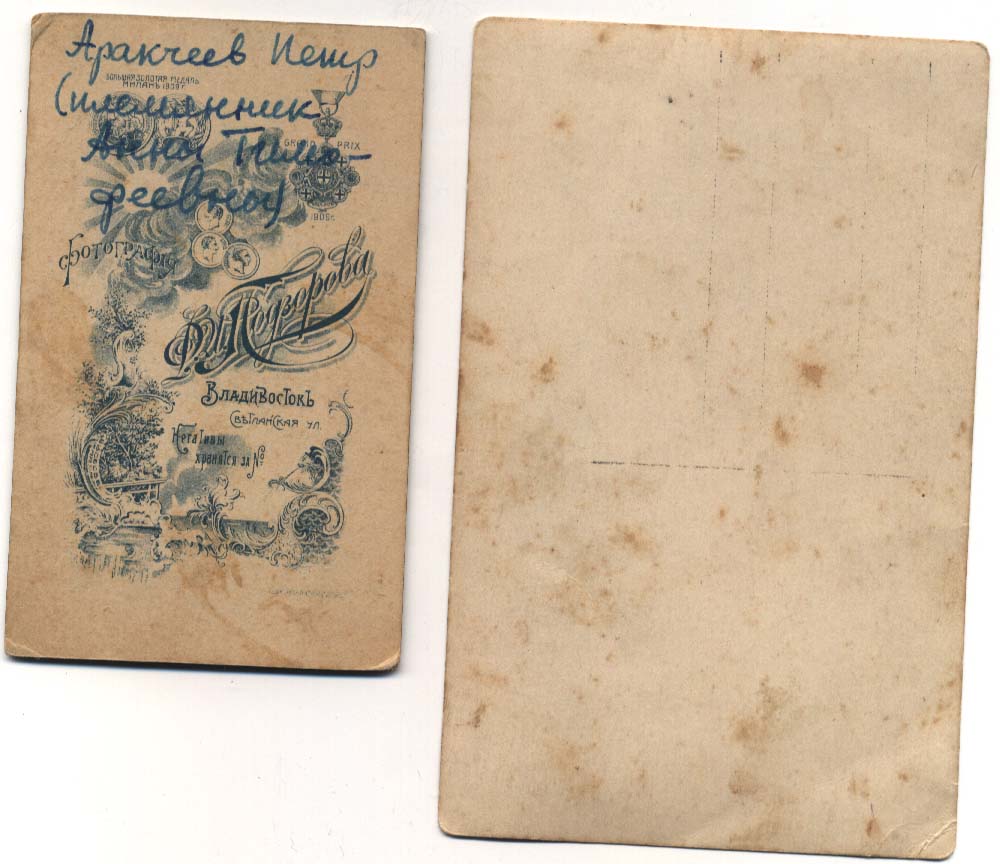 Аракчеев Петр
(племянник
Анны Тимо-
феевны)
БОЛЬШАЯ ЗОЛОТАЯ МЕДАЛЬ
МИЛАНЪ 1909 г.
GRAND PRIX
1909 г.
ФОТОГРАФІЯ
Д.И. Подзорова
ВЛАДИВОСТОКЪ
СВѢТЛАНСКАЯ УЛ.
Негативы
хранятся за №